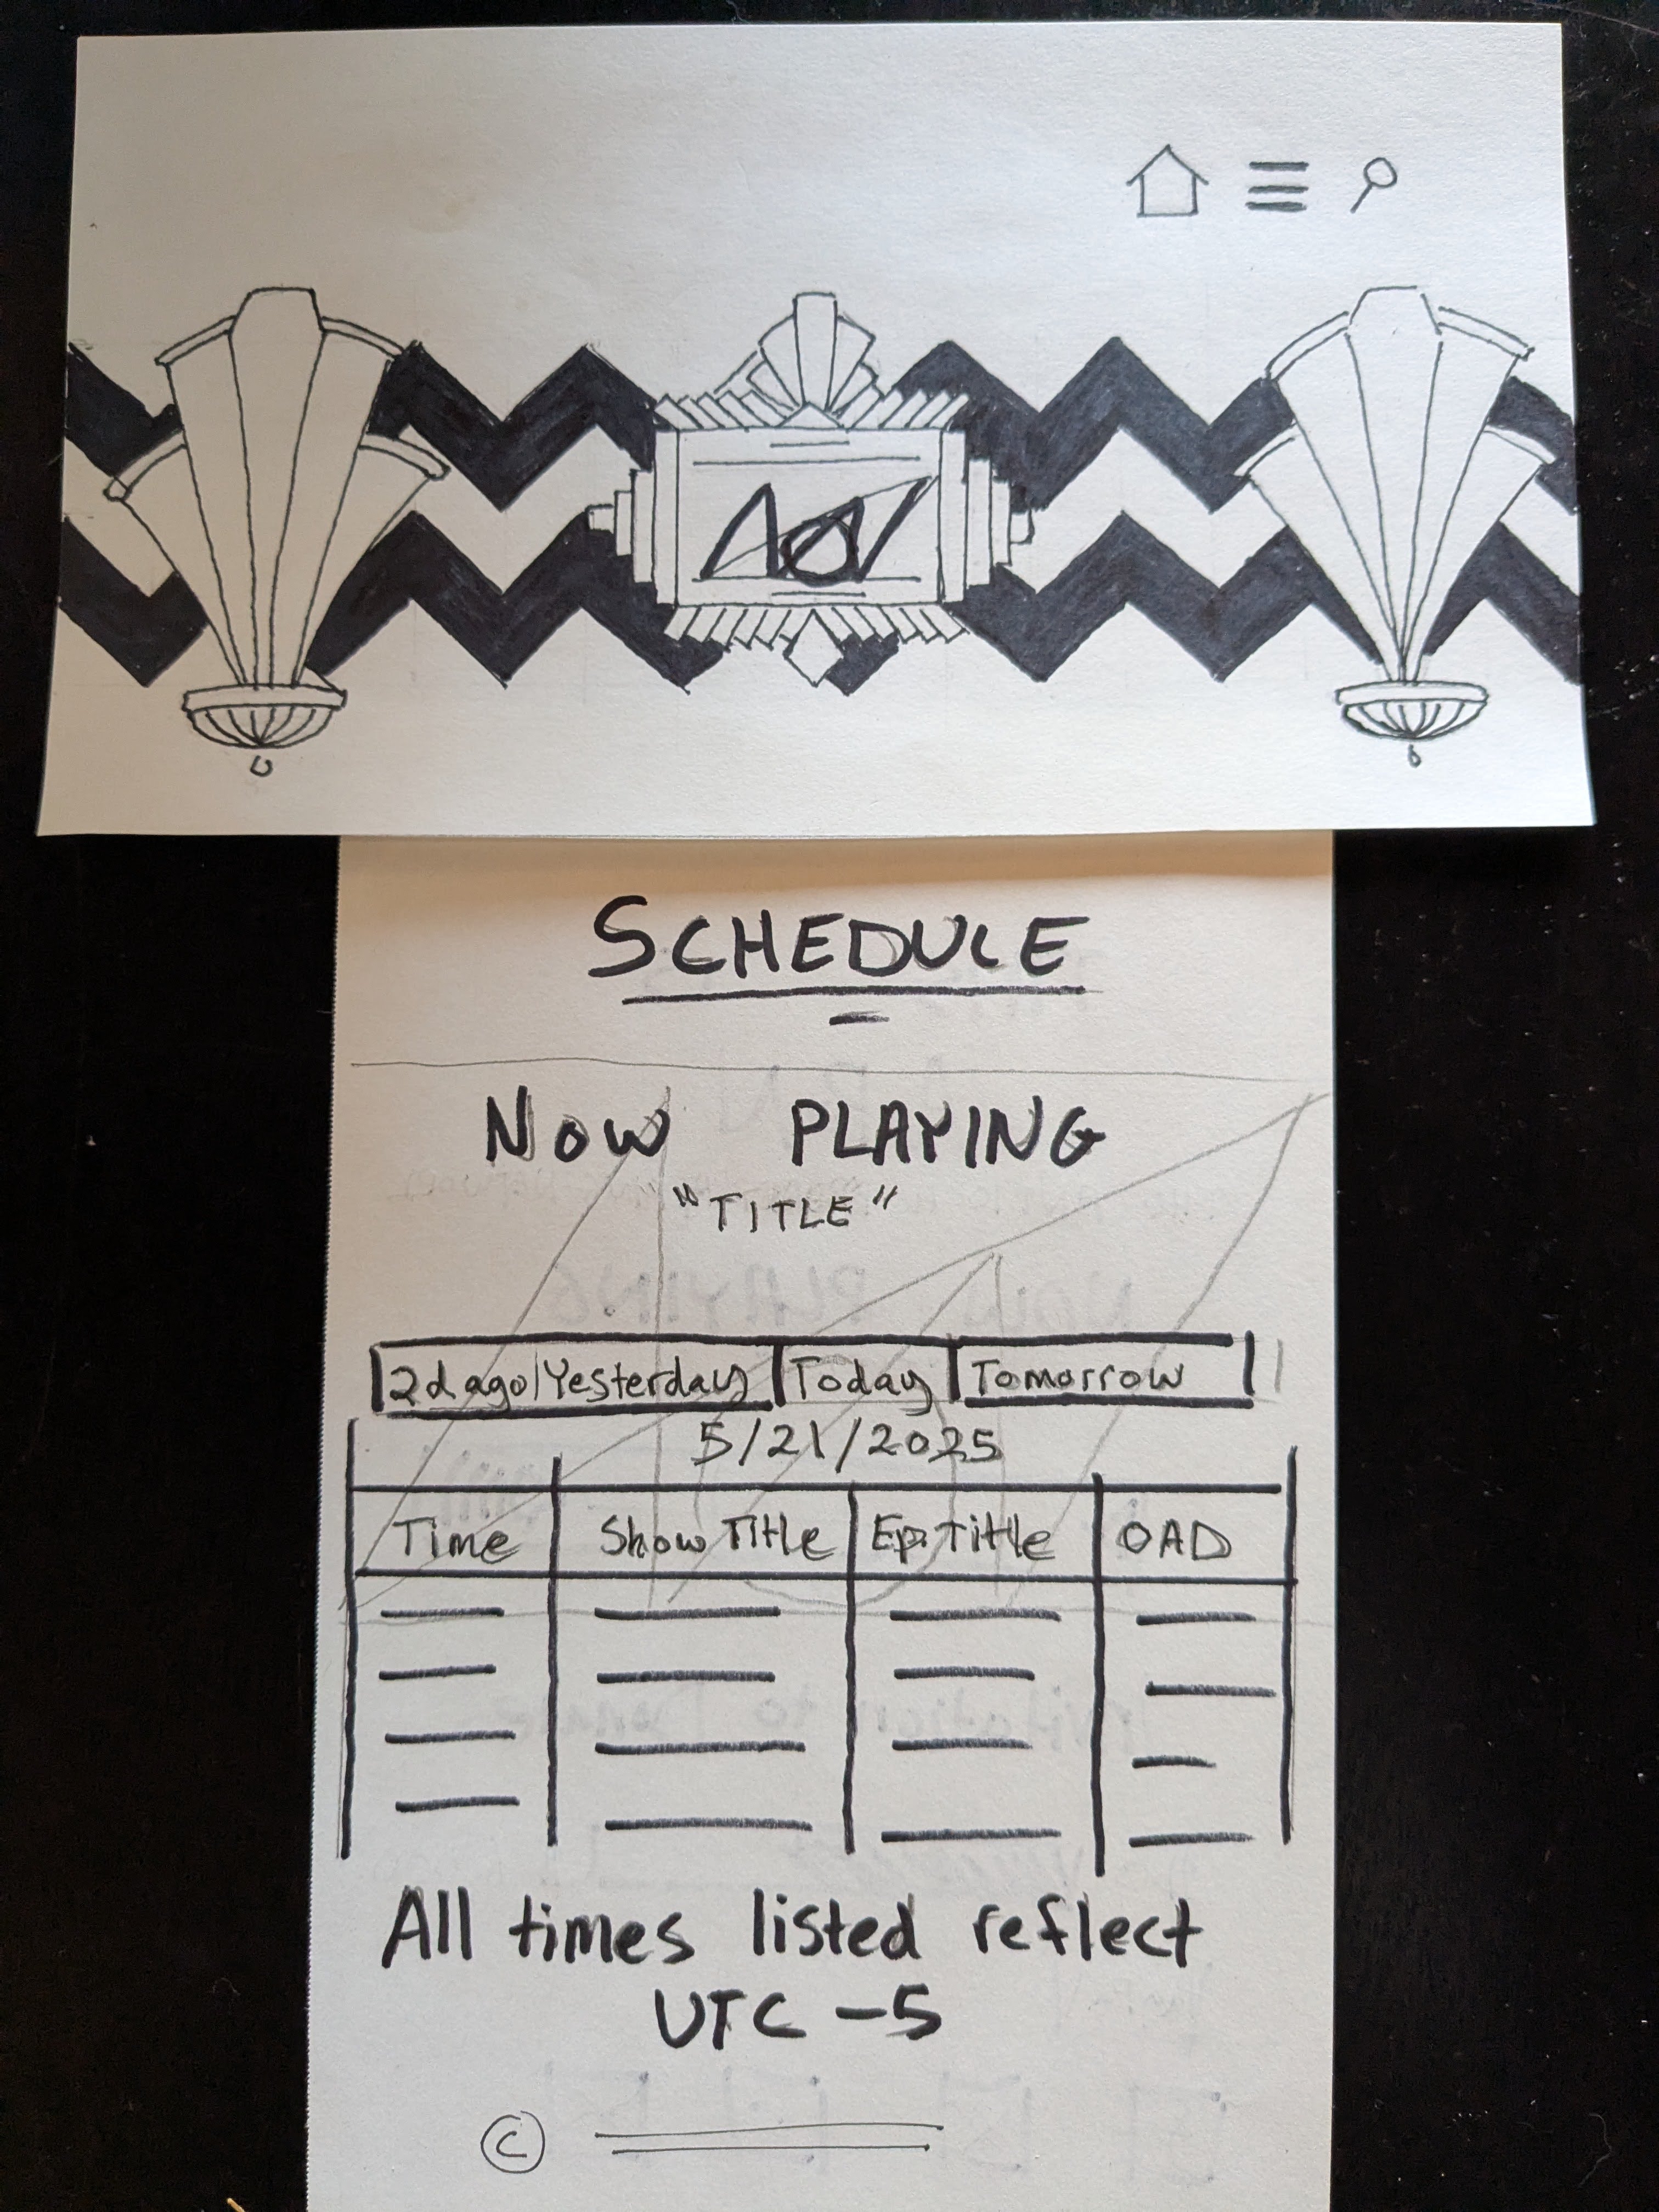 SCHEDULE
NOW PLAYING
"TITLE"
2d ago Yesterday Today Tomorrow
5/21/2025
Time Show Title Ep Title OAD
All times listed reflect
UTC -5
©